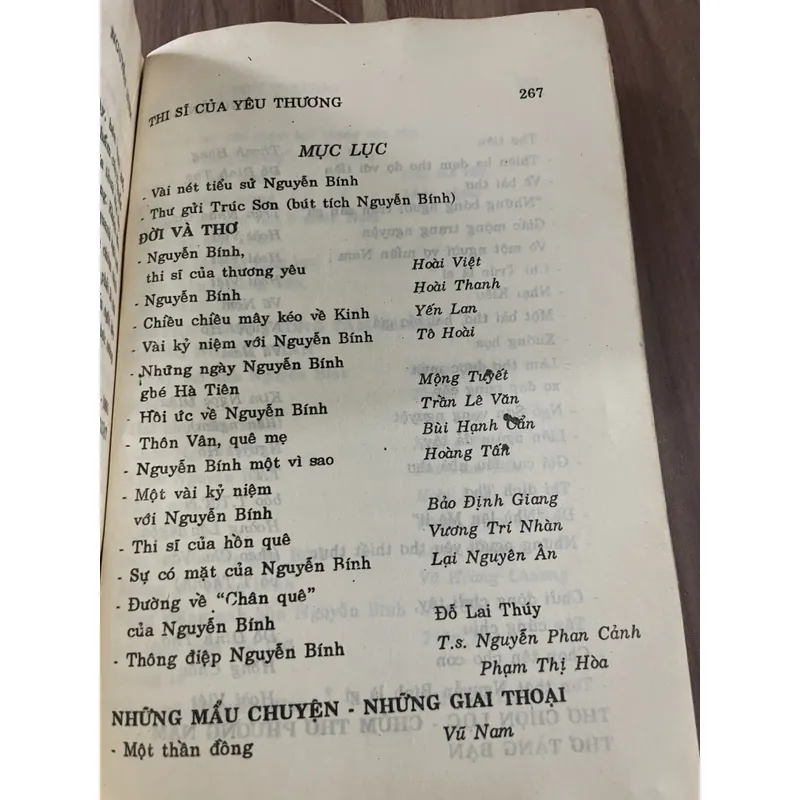 THI SĨ CỦA YÊU THƯƠNG 267
MỤC LỤC
- Vài nét tiểu sử Nguyễn Bính
- Thư gửi Trúc Sơn (bút tích Nguyễn Bính)
ĐỜI VÀ THƠ
- Nguyễn Bính,
thi sĩ của thương yêu Hoài Việt
- Nguyễn Bính Hoài Thanh
- Chiều chiều mây kéo về Kinh Yến Lan
- Vài kỷ niệm với Nguyễn Bính Tô Hoài
- Những ngày Nguyễn Bính
ghé Hà Tiên Mộng Tuyết
- Hồi ức về Nguyễn Bính Trần Lê Văn
- Thôn Vân, quê mẹ Bùi Hạnh Cẩn
- Nguyễn Bính một vì sao Hoàng Tấn
- Một vài kỷ niệm
với Nguyễn Bính Bảo Định Giang
- Thi sĩ của hồn quê Vương Trí Nhàn
- Sự có mặt của Nguyễn Bính Lại Nguyên Ân
- Đường về "Chân quê"
của Nguyễn Bính Đỗ Lai Thúy
- Thông điệp Nguyễn Bính T.s. Nguyễn Phan Cảnh
Phạm Thị Hòa
NHỮNG MẨU CHUYỆN - NHỮNG GIAI THOẠI
- Một thần đồng Vũ Nam